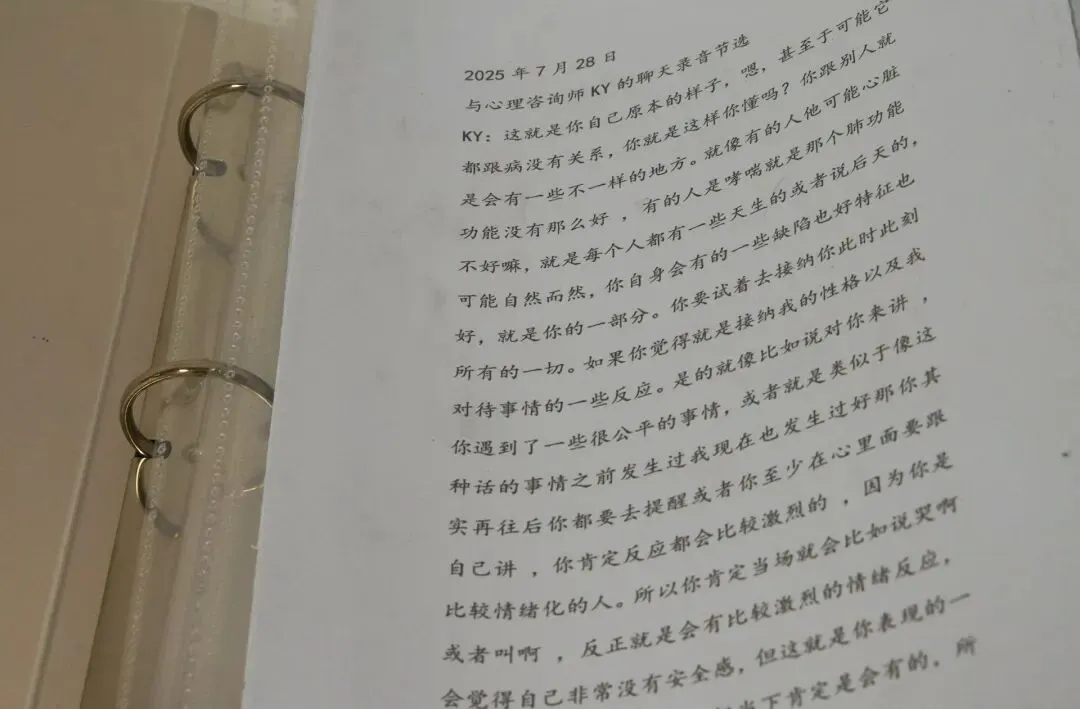 2025 年 7 月 28 日
与心理咨询师 KY 的聊天录音节选
KY：这就是你自己原本的样子，嗯，甚至于可能它
都跟病没有关系，你就是这样你懂吗？你跟别人就
是会有一些不一样的地方。就像有的人他可能心脏
功能没有那么好，有的人是哮喘就是那个肺功能
不好嘛，就是每个人都有一些天生的或者说后天的，
可能自然而然，你自身会有的一些缺陷也好特征也
好，就是你的一部分。你要试着去接纳你此时此刻
所有的一切。如果你觉得就是接纳我的性格以及我
对待事情的一些反应。是的就像比如说对你来讲，
你遇到了一些很公平的事情，或者就是类似于像这
种话的事情之前发生过我现在也发生过好那你其
实再往后你都要去提醒或者你至少在心里面要跟
自己讲，你肯定反应都会比较激烈的，因为你是
比较情绪化的人。所以你肯定当场就会比如说哭啊
或者叫啊，反正就是会有比较激烈的情绪反应，
会觉得自己非常没有安全感，但这就是你表现的一
当下肯定是会有的，所